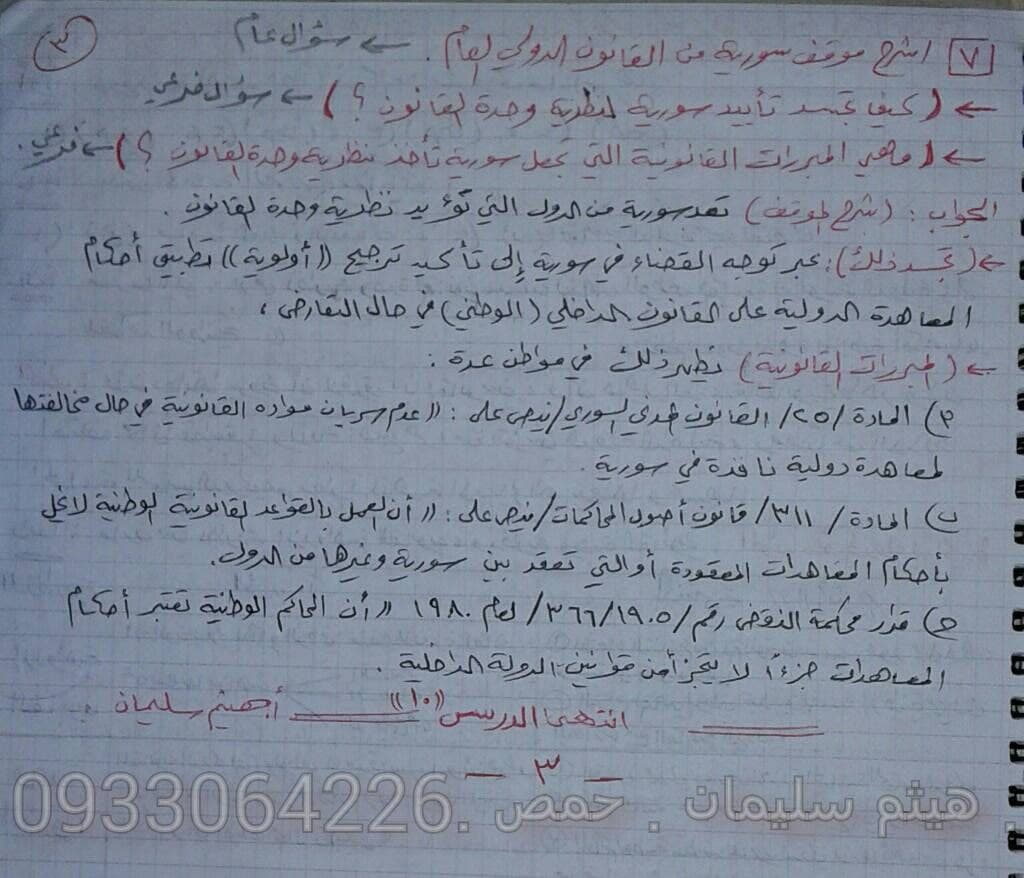 ٣
٧ اشرح موقف سورية من القانون الدولي العام. ← سؤال عام
← (كيف تجسد تأييد سورية لنظرية وحدة القانون؟) ← سؤال فرعي
← (ماهي المبررات القانونية التي تجعل سورية تأخذ نظرية وحدة القانون؟) ← فرعي.
الجواب: (شرح الموقف) تعد سورية من الدول التي تؤيد نظرية وحدة القانون.
← (تجسد ذلك): عبر توجه القضاء في سورية إلى تأكيد ترجيح ((أولوية)) تطبيق أحكام
المعاهدة الدولية على القانون الداخلي (الوطني) في حال التعارض،
← (المبررات القانونية) يظهر ذلك في مواطن عدة:
٢) المادة /٢٥/ القانون المدني السوري/ ينص على: ((عدم سريان مواده القانونية في حال مخالفتها
لمعاهدة دولية نافذة في سورية.
ب) المادة /٣١١/ قانون أصول المحاكمات/ ينص على: ((أن العمل بالقواعد القانونية الوطنية لا يخل
بأحكام المعاهدات المعقودة أو التي تعقد بين سورية وغيرها من الدول.
ج) قرار محكمة النقض رقم /٣٦٦/١٩٠٥/ لعام ١٩٨٠ ((أن المحاكم الوطنية تعتبر أحكام
المعاهدات جزءاً لا يتجزأ من قوانين الدولة الداخلية.
انتهى الدرس ((١٠)) أ.هيثم سليمان
- ٣ -
هيثم سليمان . حمص .0933064226